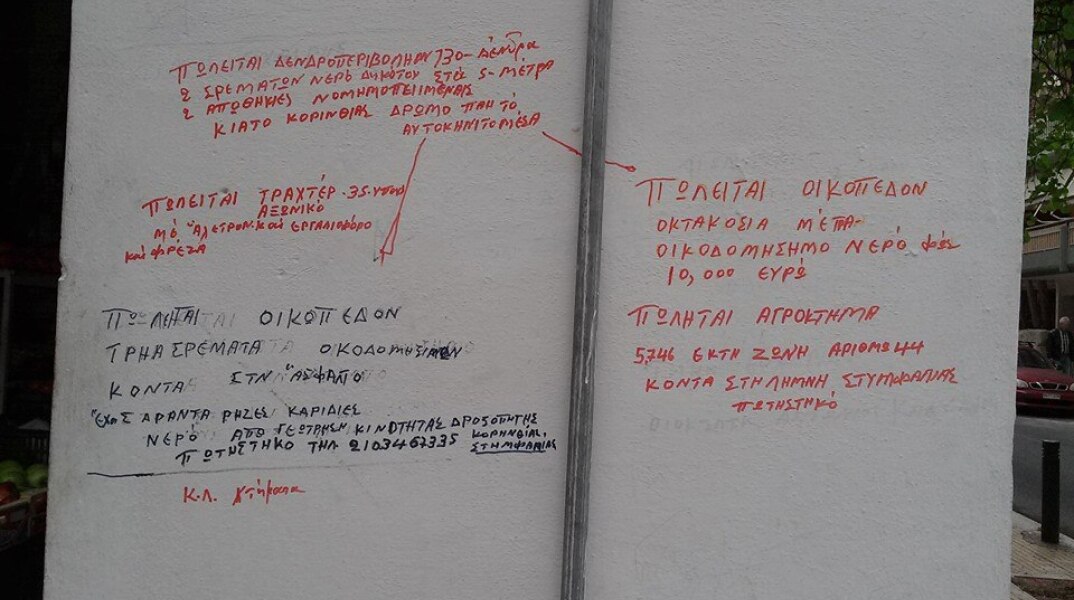 ΠΩΛΕΙΤΑΙ ΔΕΝΔΡΟΠΕΡΙΒΟΛΗΑΝ 130-ΔΕΝΤΡΑ
2 ΣΡΕΜΑΤΩΝ ΝΕΡΟ ΔΗΚΟΤΟΥ ΣΤΑ 5-ΜΕΤΡΑ
2 ΑΠΩΘΗΚΙΕΣ ΝΟΜΗΜΟΠΕΙΙΜΕΝΑΣ
ΚΙΑΤΟ ΚΟΡΙΝΘΙΑΣ ΔΡΩΜΟ ΠΑΗ ΤΟ
ΑΥΤΟΚΗΝΙΤΟ ΜΕΣΑ
ΠΩΛΕΙΤΑΙ ΤΡΑΧΤΕΡ-35-
ΑΞΩΝΙΚΟ
ΜΟ ΑΛΕΤΡΟΝ ΚΑΙ ΕΡΓΑΛΙΟΦΟΡΟ
ΚΑΙ ΦΡΕΖΑ
ΠΩΛΕΙΤΑΙ ΟΙΚΩΠΕΔΟΝ
ΤΡΗΑ ΣΡΕΜΑΤΑ ΟΚΟΔΟΜΗΣΙΜΩΝ
ΚΟΝΤΑ ΣΤΝ ΑΣΦΑΛΤΟ
ΕΧΗ ΣΑΡΑΝΤΑ ΡΗΖΕΣ ΚΑΡΙΔΙΕΣ
ΝΕΡΟ ΑΠΟ ΓΕΩΤΡΗΣΗ ΚΙΝΟΤΗΤΑΣ ΔΡΟΣΟΠΗΓΗΣ
ΠΩΤΗΣΤΗΚΟ ΤΗΛ 2103467335 ΚΟΡΗΝΘΙΑΣ,
ΣΤΗΜΦΑΛΙΑΣ
Κ.Λ. Χτήματα
ΠΩΛΕΙΤΑΙ ΟΙΚΟΠΕΔΟΝ
ΟΚΤΑΚΟΣΙΑ ΜΕΤΡΑ-
ΟΙΚΟΔΟΜΗΣΗΜΟ ΝΕΡΟ ΦΩΣ
10,000 ΕΥΡΩ
ΠΩΛΗΤΑΙ ΑΓΡΟΚΤΗΜΑ
5,746 ΕΚΤΗ ΖΩΝΗ ΑΡΙΘΜΩ 44
ΚΟΝΤΑ ΣΤΗ ΛΗΜΝΗ ΣΤΥΜΦΑΛΙΑΣ
ΠΩΤΗΣΤΗΚΟ